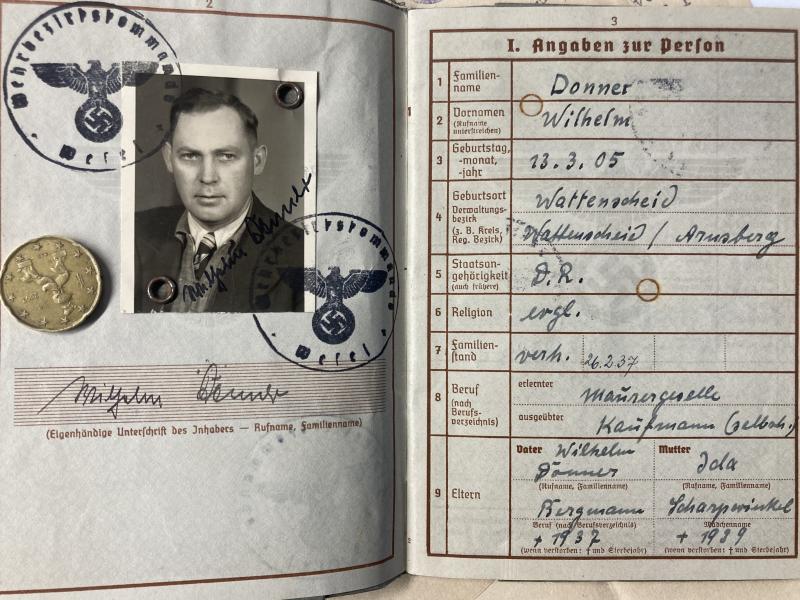 2
Wehrbezirkskommando
Wesel
Wilhelm Donner
Wehrbezirkskommando
Wesel
Wilhelm Donner
(Eigenhändige Unterschrift des Inhabers — Rufname, Familienname)
3
I. Angaben zur Person
1 Familien-
name
Donner
2 Vornamen
(Rufname
unterstreichen)
Wilhelm
3 Geburtstag,
-monat,
-jahr
13.3.05
4 Geburtsort
Verwaltungs-
bezirk
(z. B. Kreis,
Reg. Bezirk)
Wattenscheid
Wattenscheid / Arnsberg
5 Staatsan-
gehörigkeit
(auch frühere)
D.R.
6 Religion
evgl.
7 Familien-
stand
verh. 26.2.37
8 Beruf
(nach
Berufs-
verzeichnis)
erlernter
Maurergeselle
ausgeübter
Kaufmann (selbst.)
9 Eltern
Vater Wilhelm
Donner
(Rufname, Familienname)
Bergmann
Beruf (nach Berufsverzeichnis)
+ 1937
(wenn verstorben: † und Sterbejahr)
Mutter
Ida
(Rufname, Familienname)
Scharpwinkel
Mädchenname
+ 1939
(wenn verstorben: † und Sterbejahr)